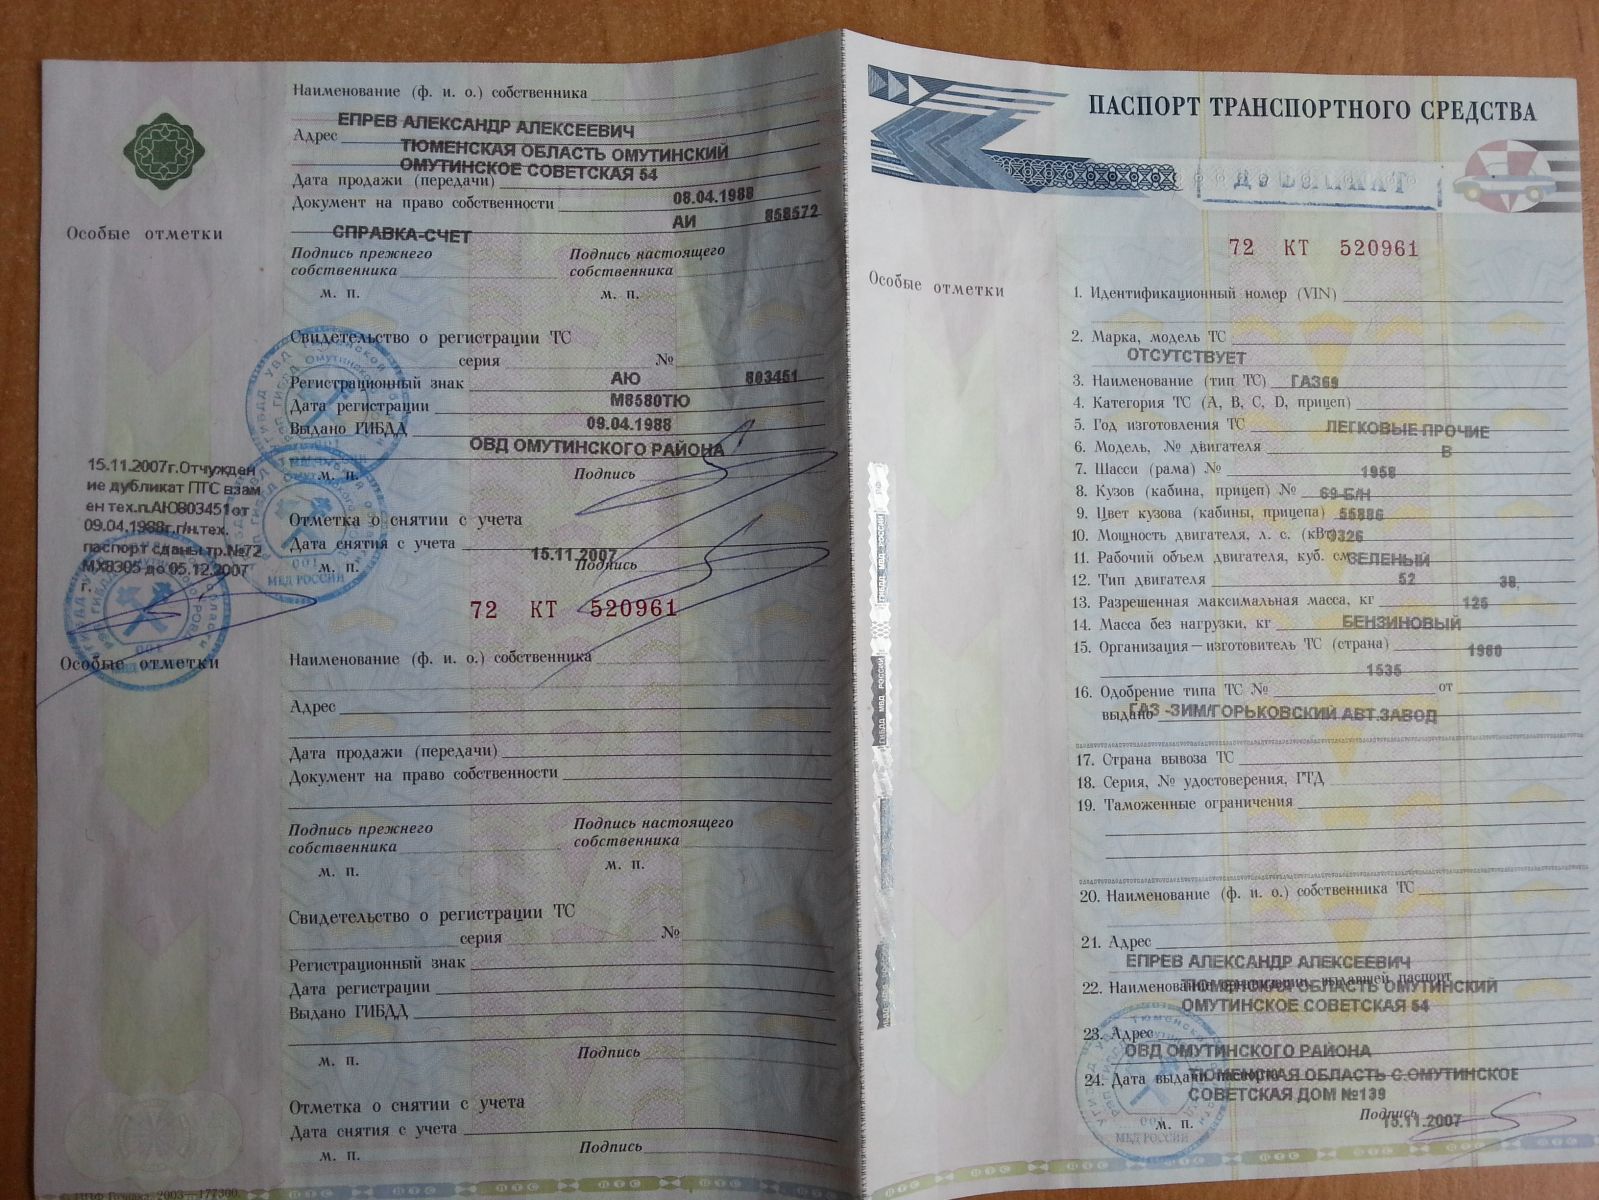 Наименование (ф. и. о.) собственника
ЕПРЕВ АЛЕКСАНДР АЛЕКСЕЕВИЧ
Адрес
ТЮМЕНСКАЯ ОБЛАСТЬ ОМУТИНСКИЙ
ОМУТИНСКОЕ СОВЕТСКАЯ 54
Дата продажи (передачи)
08.04.1988
Документ на право собственности
АИ 858572
СПРАВКА-СЧЕТ
Подпись прежнего собственника
Подпись настоящего собственника
м. п. м. п.
Особые отметки
Свидетельство о регистрации ТС
серия №
АЮ 803451
Регистрационный знак
М8580ТЮ
Дата регистрации
09.04.1988
Выдано ГИБДД
ОВД ОМУТИНСКОГО РАЙОНА
м. п. Подпись
15.11.2007г.Отчужден
ие дубликат ПТС взам
ен тех.п.АЮ803451от
09.04.1988г.г/н.тех.
паспорт сданы тр.№72
МХ8305 до 05.12.2007
г.
Отметка о снятии с учета
Дата снятия с учета
15.11.2007
м. п. Подпись
72 КТ 520961
Особые отметки
Наименование (ф. и. о.) собственника
Адрес
Дата продажи (передачи)
Документ на право собственности
Подпись прежнего собственника
Подпись настоящего собственника
м. п. м. п.
Свидетельство о регистрации ТС
серия №
Регистрационный знак
Дата регистрации
Выдано ГИБДД
м. п. Подпись
Отметка о снятии с учета
Дата снятия с учета
м. п. Подпись
ПАСПОРТ ТРАНСПОРТНОГО СРЕДСТВА
72 КТ 520961
Особые отметки
1. Идентификационный номер (VIN)
2. Марка, модель ТС
ОТСУТСТВУЕТ
3. Наименование (тип ТС) ГАЗ69
4. Категория ТС (А, В, С, D, прицеп)
5. Год изготовления ТС ЛЕГКОВЫЕ ПРОЧИЕ
6. Модель, № двигателя В
7. Шасси (рама) № 1958
8. Кузов (кабина, прицеп) № 69-Б/Н
9. Цвет кузова (кабины, прицепа) 55886
10. Мощность двигателя, л. с. (кВт) 0326
11. Рабочий объем двигателя, куб. см ЗЕЛЕНЫЙ
12. Тип двигателя 52 38.
13. Разрешенная максимальная масса, кг 125
14. Масса без нагрузки, кг БЕНЗИНОВЫЙ
15. Организация—изготовитель ТС (страна) 1960
1535
16. Одобрение типа ТС № от
выдано ГАЗ -ЗИМ/ГОРЬКОВСКИЙ АВТ.ЗАВОД
17. Страна вывоза ТС
18. Серия, № удостоверения, ГТД
19. Таможенные ограничения
20. Наименование (ф. и. о.) собственника ТС
21. Адрес
ЕПРЕВ АЛЕКСАНДР АЛЕКСЕЕВИЧ
22. Наименование организации, выдавшей паспорт
ТЮМЕНСКАЯ ОБЛАСТЬ ОМУТИНСКИЙ
ОМУТИНСКОЕ СОВЕТСКАЯ 54
23. Адрес
ОВД ОМУТИНСКОГО РАЙОНА
24. Дата выдачи паспорта
ТЮМЕНСКАЯ ОБЛАСТЬ С.ОМУТИНСКОЕ
СОВЕТСКАЯ ДОМ №139
м. п. Подпись
15.11.2007
МВД РОССИИ